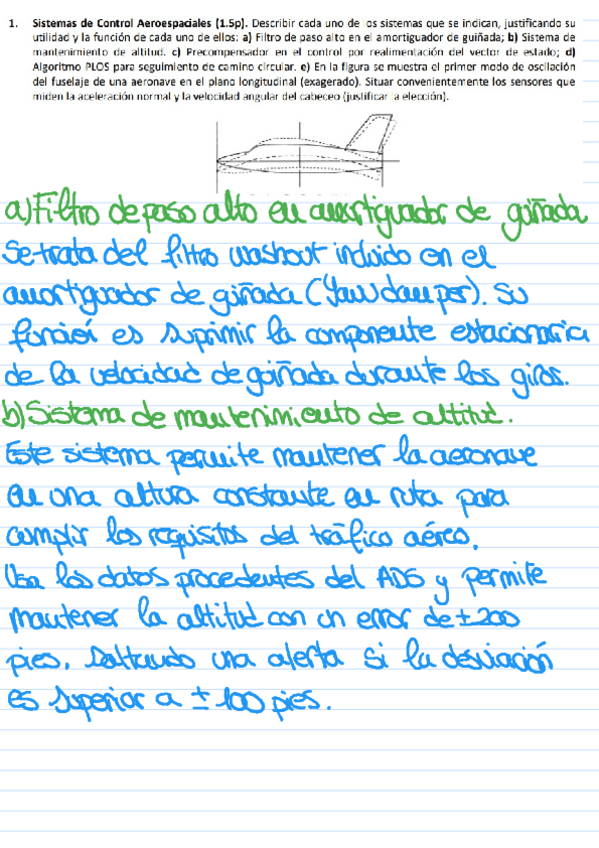 1. Sistemas de Control Aeroespaciales (1.5p). Describir cada uno de los sistemas que se indican, justificando su
utilidad y la función de cada uno de ellos: a) Filtro de paso alto en el amortiguador de guiñada; b) Sistema de
mantenimiento de altitud. c) Precompensador en el control por realimentación del vector de estado; d)
Algoritmo PLOS para seguimiento de camino circular. e) En la figura se muestra el primer modo de oscilación
del fuselaje de una aeronave en el plano longitudinal (exagerado). Situar convenientemente los sensores que
miden la aceleración normal y la velocidad angular del cabeceo (justificar la elección).
a) Filtro de paso alto en amortiguador de guiñada
Se trata del filtro washout incluido en el
amortiguador de guiñada (Yaw damper). Su
función es suprimir la componente estacionaria
de la velocidad de guiñada durante los giros.
b) Sistema de mantenimiento de altitud.
Este sistema permite mantener la aeronave
en una altura constante en ruta para
cumplir los requisitos del tráfico aéreo.
Usa los datos procedentes del ADS y permite
mantener la altitud con un error de ±200
pies. Saltando una alerta si la desviación
es superior a ±100 pies.